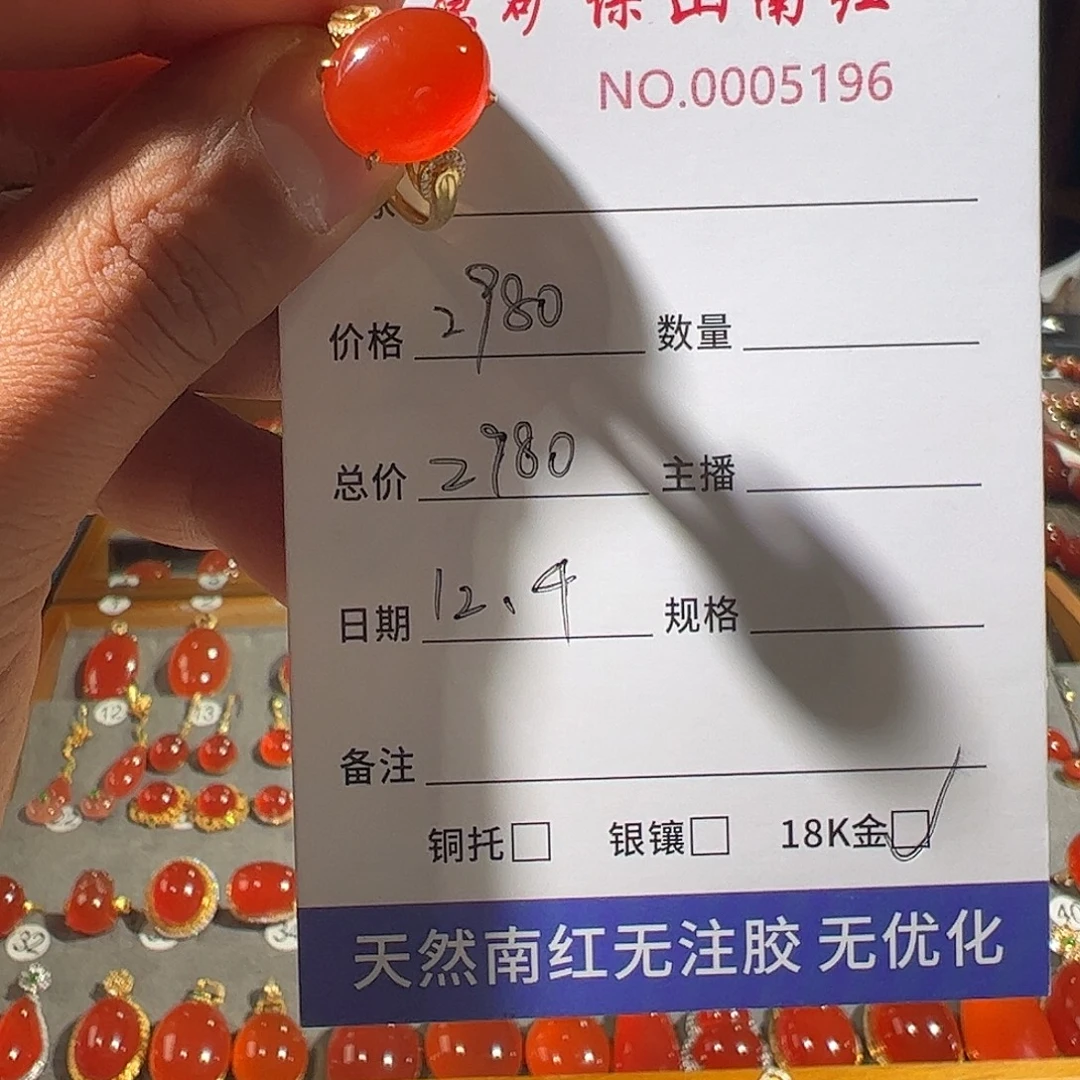 保山南红
NO.0005196
价格 2980 数量
总价 2980 主播
日期 12.4 规格
备注
铜托 银镶 18K金
天然南红无注胶 无优化
12 13
32